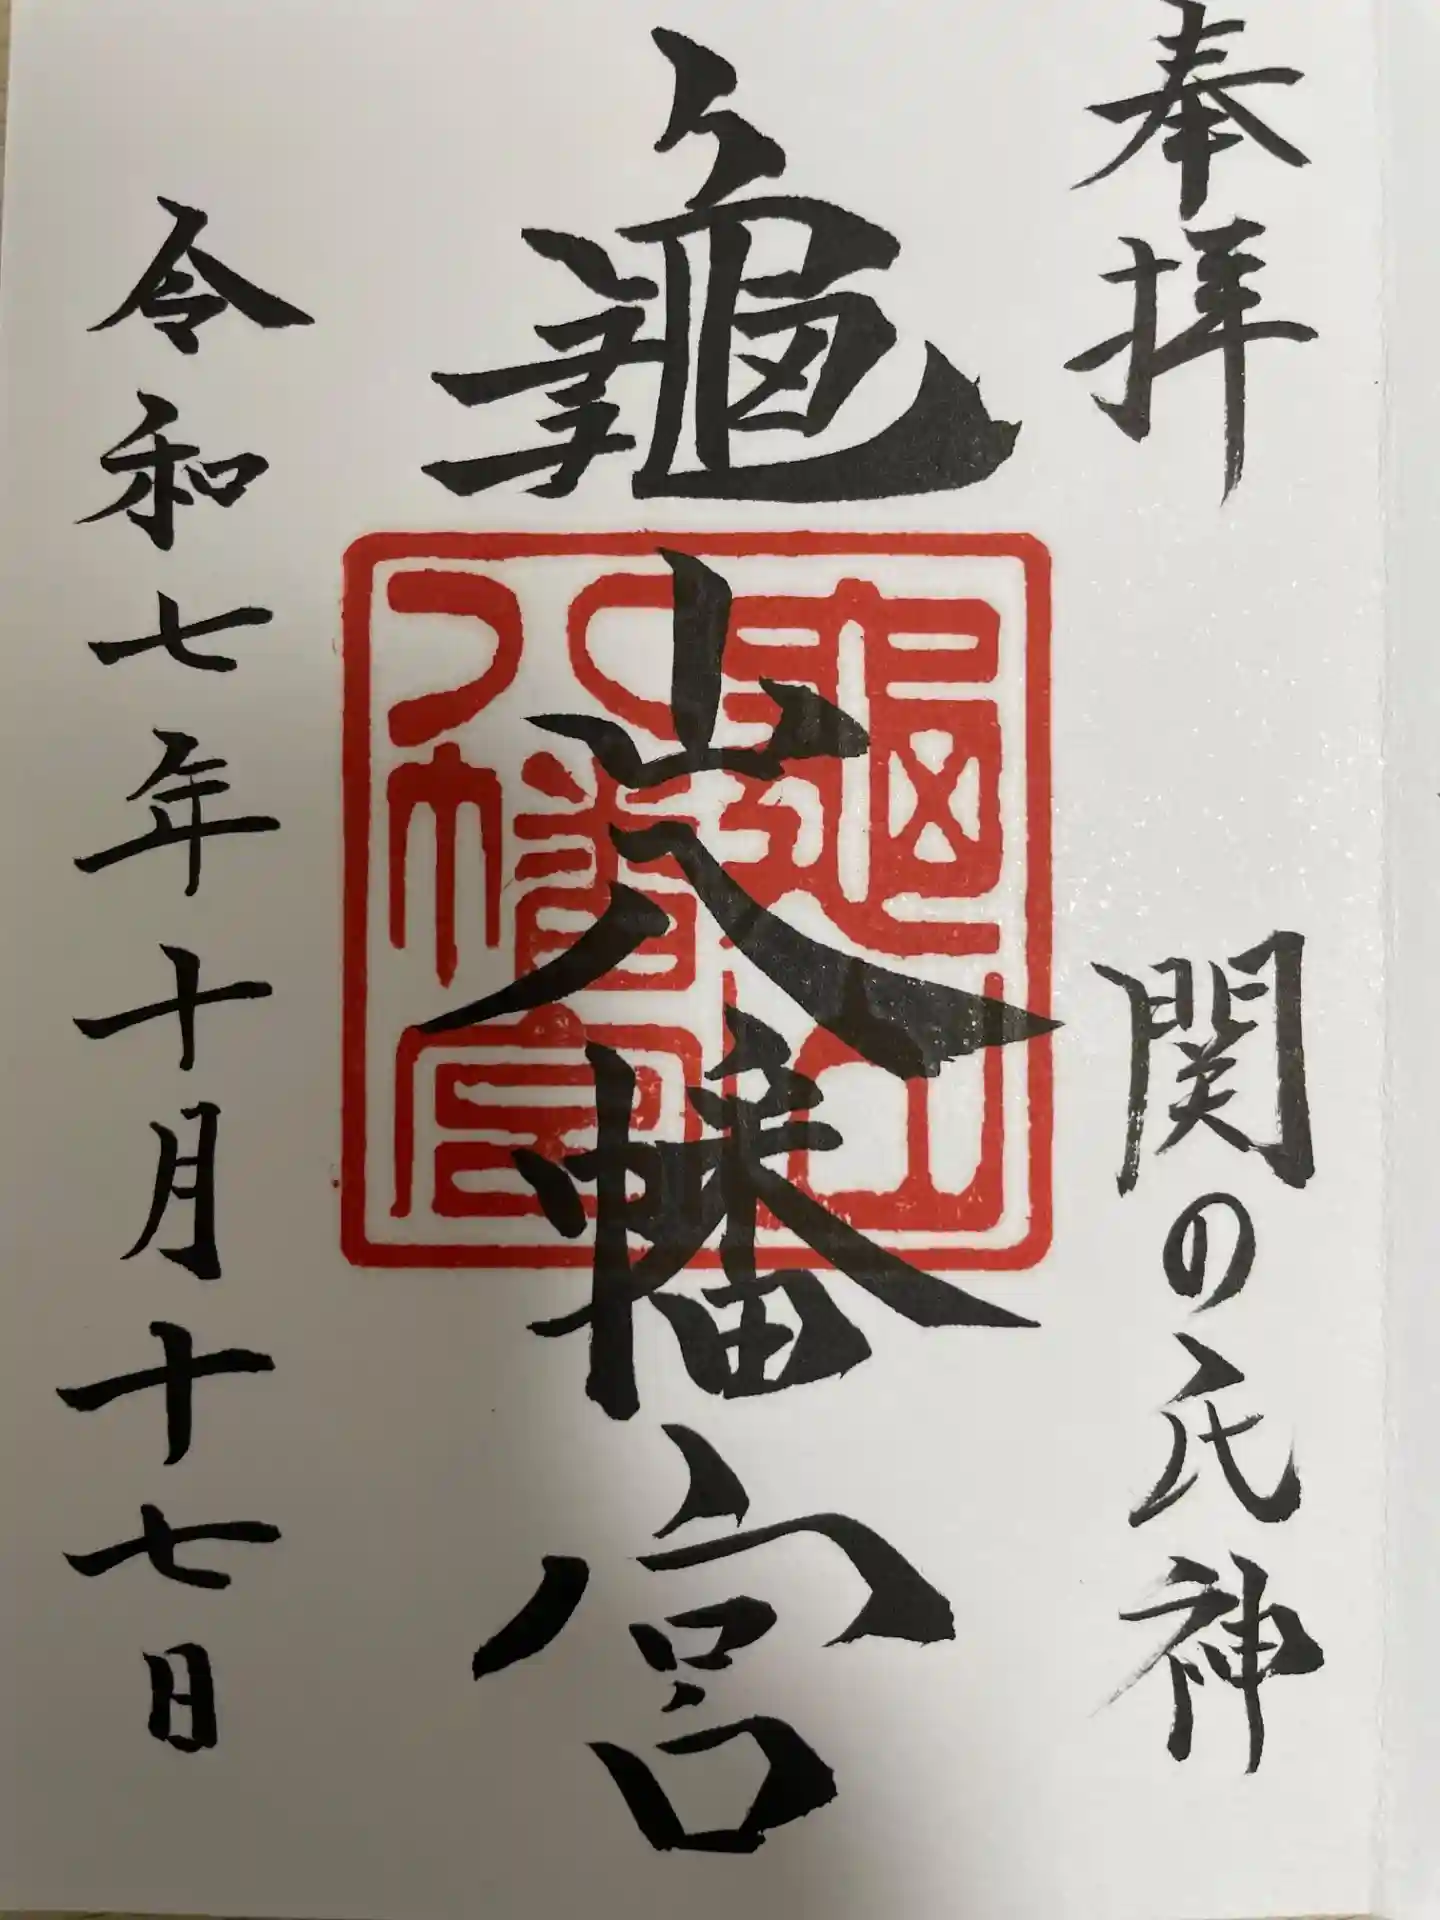 奉拝 関の氏神
龜山八幡宮
龜山八幡宮
令和七年十月十七日